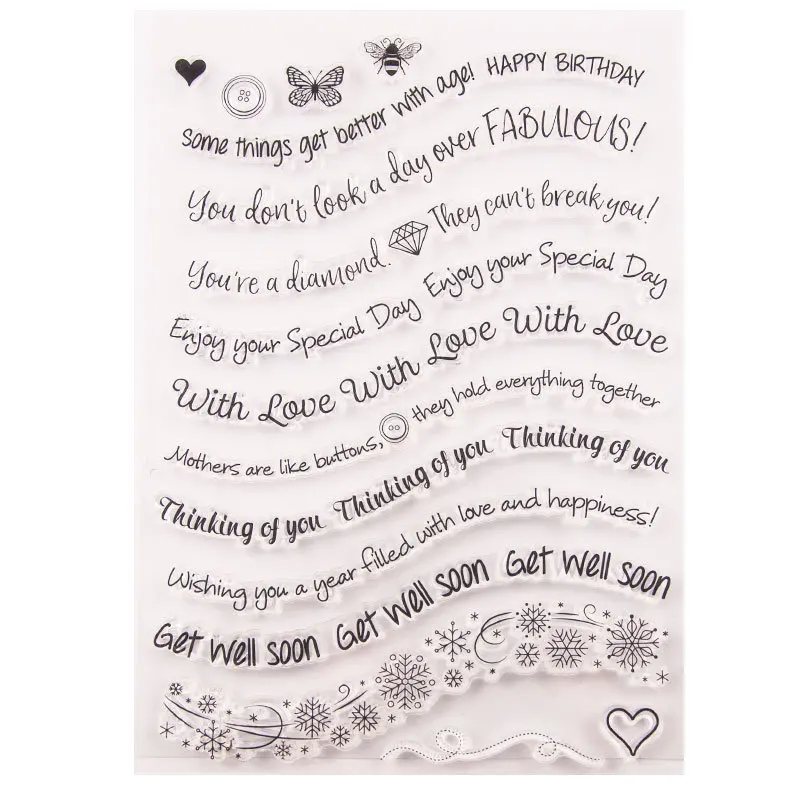 Some things get better with age! HAPPY BIRTHDAY
You don't look a day over FABULOUS!
You're a diamond. They can't break you!
Enjoy your Special Day Enjoy your Special Day
With Love With Love With Love
Mothers are like buttons, they hold everything together
Thinking of you Thinking of you Thinking of you
Wishing you a year filled with love and happiness!
Get Well soon Get Well soon Get Well soon